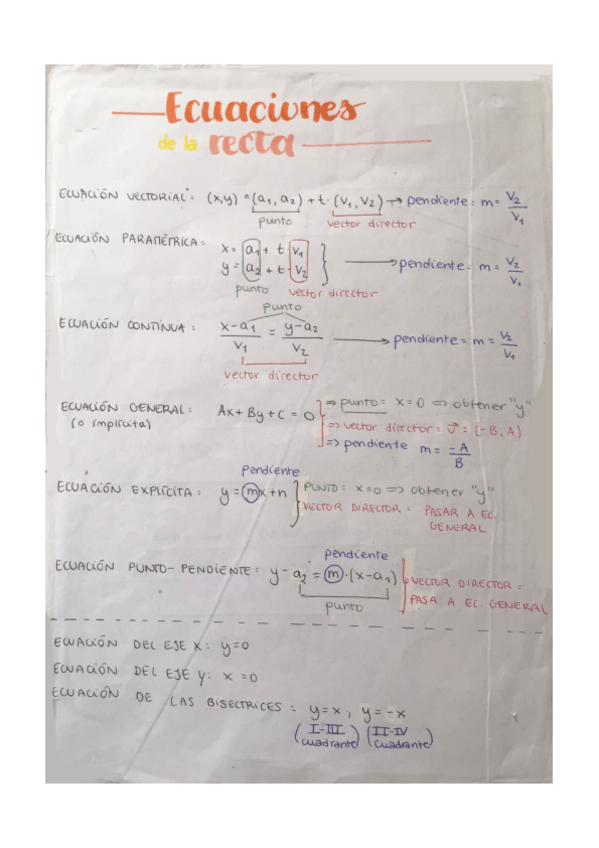 Ecuaciones
de la recta
ECUACIÓN VECTORIAL: (x,y) = (a₁, a₂) + t · (v₁, v₂) → pendiente: m = v₂/v₁
punto vector director
ECUACIÓN PARAMÉTRICA: x = a₁ + t · v₁
y = a₂ + t · v₂ → pendiente: m = v₂/v₁
punto vector director
punto
ECUACIÓN CONTÍNUA: x-a₁/v₁ = y-a₂/v₂ → pendiente = m = v₂/v₁
vector director
ECUACIÓN GENERAL: Ax + By + C = 0 ⇒ punto: x=0 ⇒ obtener "y"
(o implícita) ⇒ vector director: v⃗: (-B, A)
⇒ pendiente m = -A/B
Pendiente
ECUACIÓN EXPLÍCITA: y = mx+n PUNTO: x=0 ⇒ obtener "y"
VECTOR DIRECTOR: PASAR A EC. GENERAL
pendiente
ECUACIÓN PUNTO-PENDIENTE: y-a₂ = m·(x-a₁) VECTOR DIRECTOR:
punto PASA A EC. GENERAL
ECUACIÓN DEL EJE X: y=0
ECUACIÓN DEL EJE Y: x=0
ECUACIÓN DE LAS BISECTRICES: y=x, y=-x
(I-III cuadrante) (II-IV cuadrante)